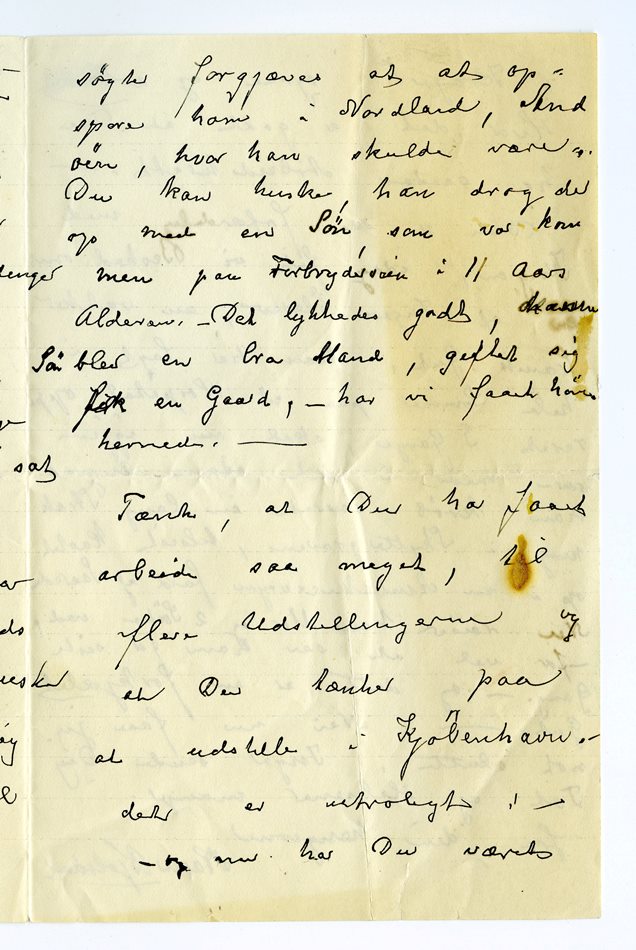 søgte forgjæves at at op-
spore ham i Nordland, And
øen, hvor han skulde være -.
Du kan huske, han drog der
op med en Søn, som var kom
men paa Forbryderveien i 11 Aars
Alderen. - Det lykkedes godt,
Søn blev en bra Mand, giftet sig
fik en Gaard, - har vi faaet høre
hernede. —
Tænk, at Du har faaet
arbeide saa meget, til
flere Udstillingerne og
at Du tænker paa
at udstille i Kjøbenhavn. -
det er utroligt ! -
- og nu har Du været
enger
sat